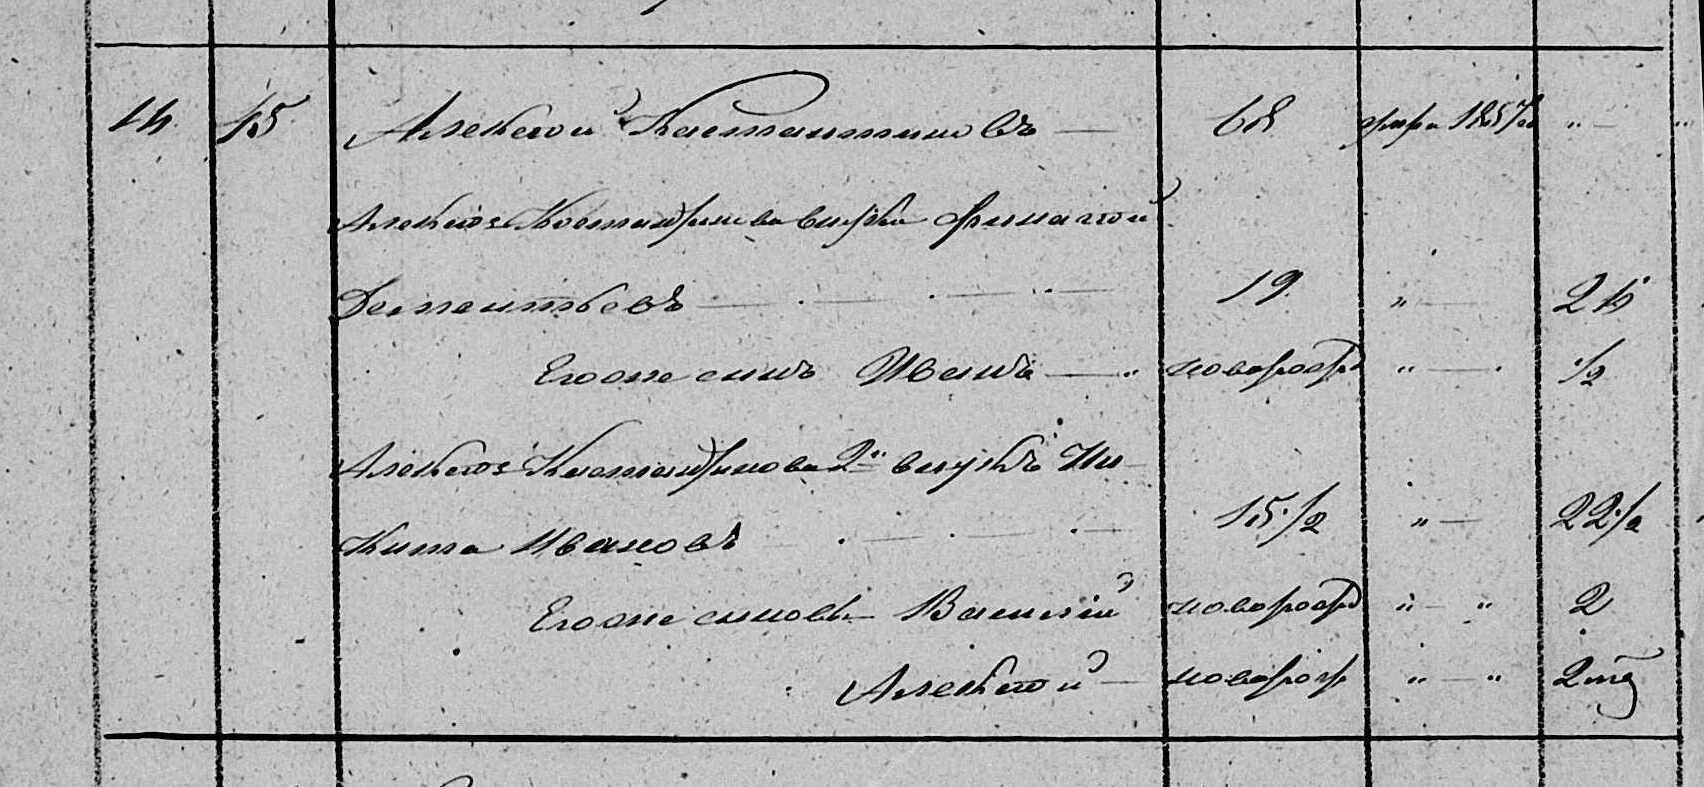 14 15 Алексей Костантиновъ — 68 умре 1857 " —
Алексея Костантинова внукъ
Дементьевъ — 19 " — 26
Егоже сынъ Иванъ — " новорожд " — 1/2
Алексея Костантинова 2й внукъ Ни-
кита Ивановъ — 15 1/2 " — 22 1/2
Егоже сыновья Василій новорожд " — " 2
Алексей — новорож " — " 2 нед